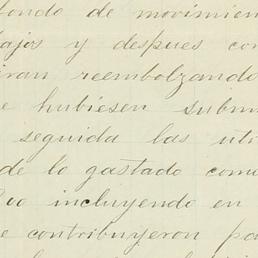 fondo de movimien
bajos y despues con
iran reembolzando
e hubiesen submi
seguida las uti
de lo gastado como
incluyendo en
e contribuyeron pa